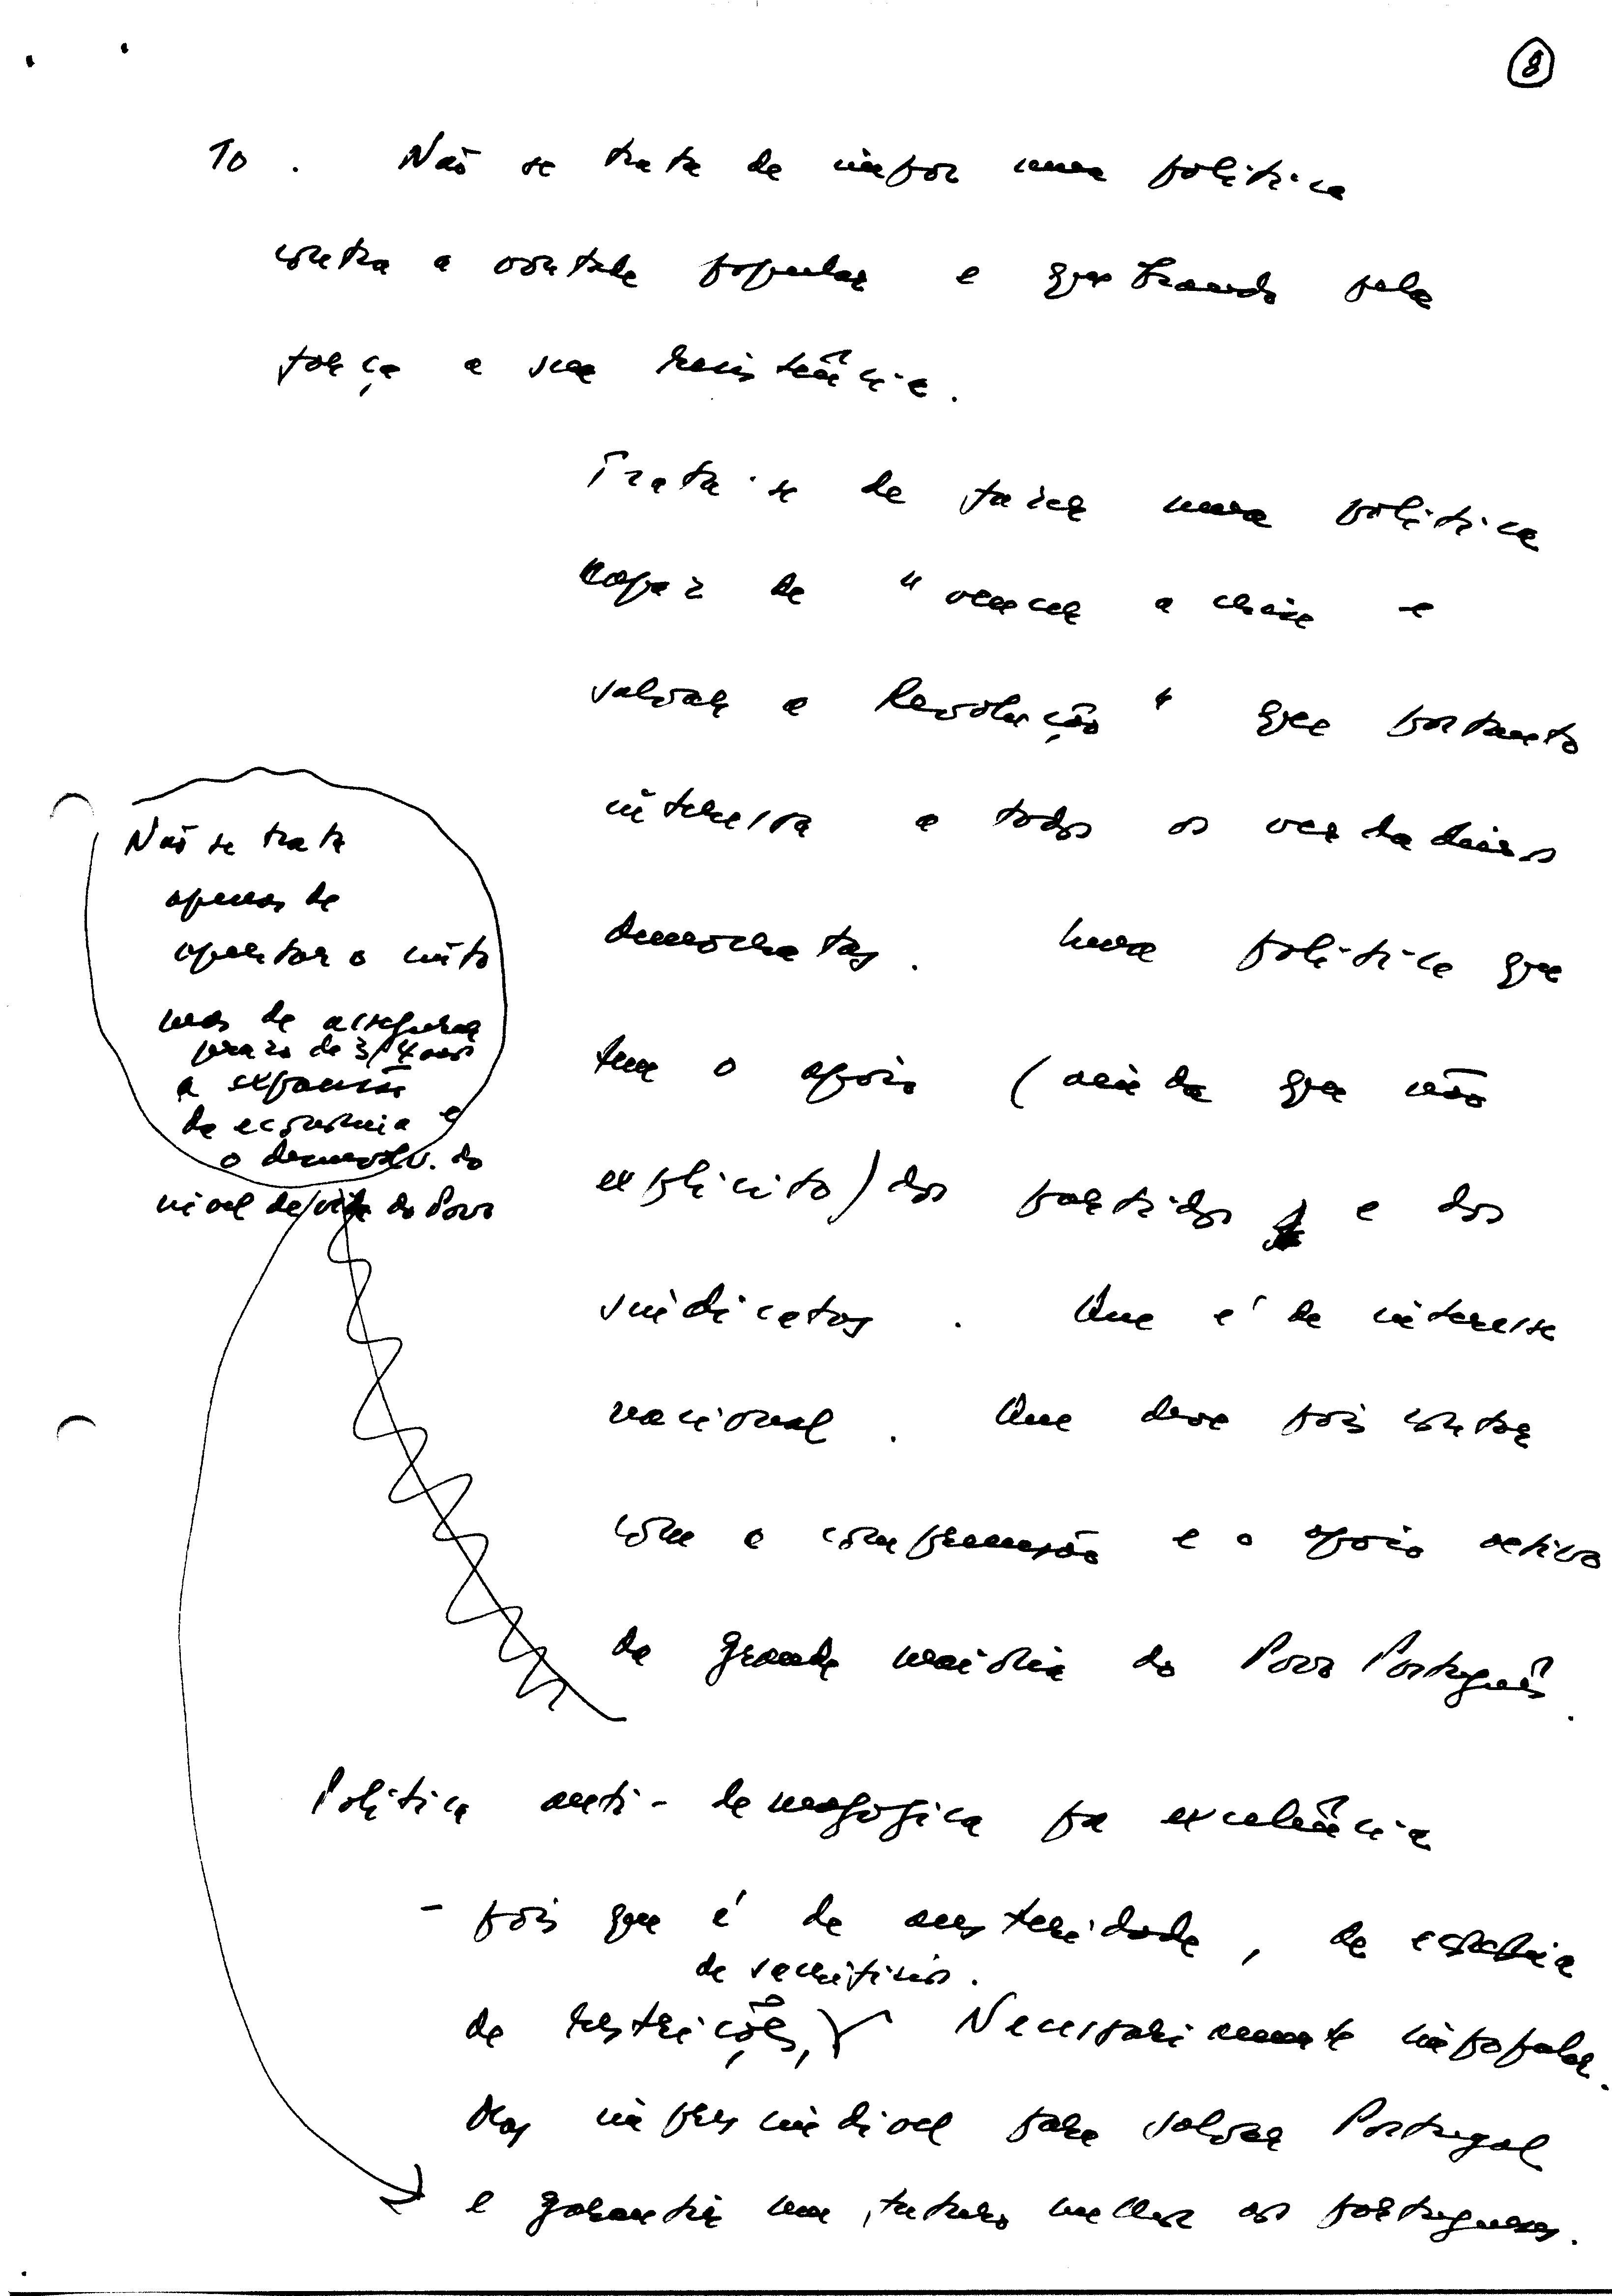 8
10. Não se trata de impor uma política
contra a vontade popular e quebrando pela
força a sua resistência.
Trata-se de fazer uma política
capaz de "vencer a crise e
salvar a Revolução" que portanto
interessa a todos os verdadeiros
democratas. Uma política que
tem o apoio (ainda que não
explícito) dos partidos e dos
sindicatos. Que é de interesse
nacional. Que deve pois contar
com a compreensão e o apoio activo
da grande maioria do Povo Português.
Não se trata
apenas de
apertar o cinto
mas de assegurar
prazo de 3/4 anos
a expansão
da economia e
o desenvolv. do
nível de vida do Povo
Política anti-demagógica por excelência
- pois que é de austeridade, de
de sacrifícios.
de restrições, Necessariamente impopular.
Mas imprescindível para salvar Portugal
e garantir um futuro melhor aos portugueses.